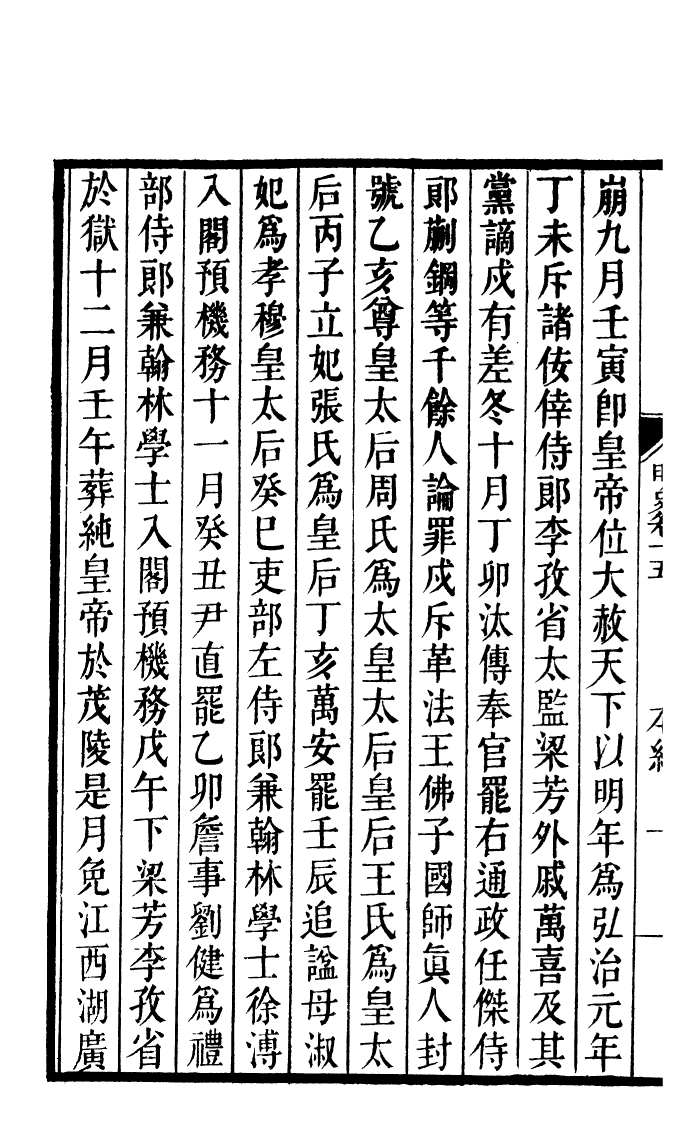 崩九月壬寅卽皇帝位大赦天下以明年爲弘治元年
丁未斥諸佞倖侍郞李孜省太監梁芳外戚萬喜及其
黨謫戍有差冬十月丁卯汰傳奉官罷右通政任傑侍
郞蒯鋼等千餘人論罪戍斥革法王佛子國師眞人封
號乙亥尊皇太后周氏爲太皇太后皇后王氏爲皇太
后丙子立妃張氏爲皇后丁亥萬安罷壬辰追諡母淑
妃爲孝穆皇太后癸巳吏部左侍郞兼翰林學士徐溥
入閣預機務十一月癸丑尹直罷乙卯詹事劉健爲禮
部侍郞兼翰林學士入閣預機務戊午下梁芳李孜省
於獄十二月壬午葬純皇帝於茂陵是月免江西湖廣